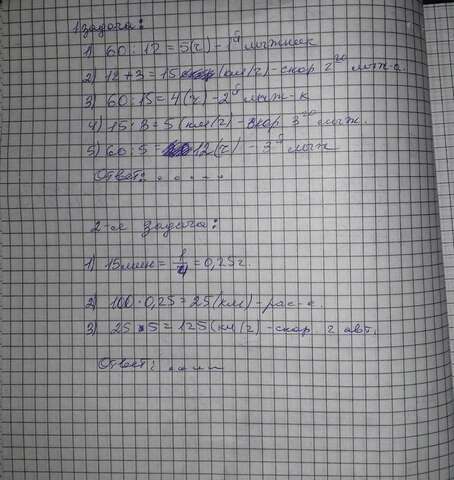 1 задача:
1) 60 : 12 = 5(ч) - 1й лыжник
2) 12 + 3 = 15 (км/ч) - скор 2го лыж-а.
3) 60 : 15 = 4(ч) - 2й лыж-к
4) 15 : 3 = 5 (км/ч) - скор 3го лыж.
5) 60 : 5 = 12(ч) - 3й лыж
Ответ: .....
2-я задача:
1) 15мин = 1/4 = 0,25ч.
2) 100 · 0,25 = 25(км) - рас-е.
3) 25 · 5 = 125(км/ч) - скор 2 авт.
Ответ: .....